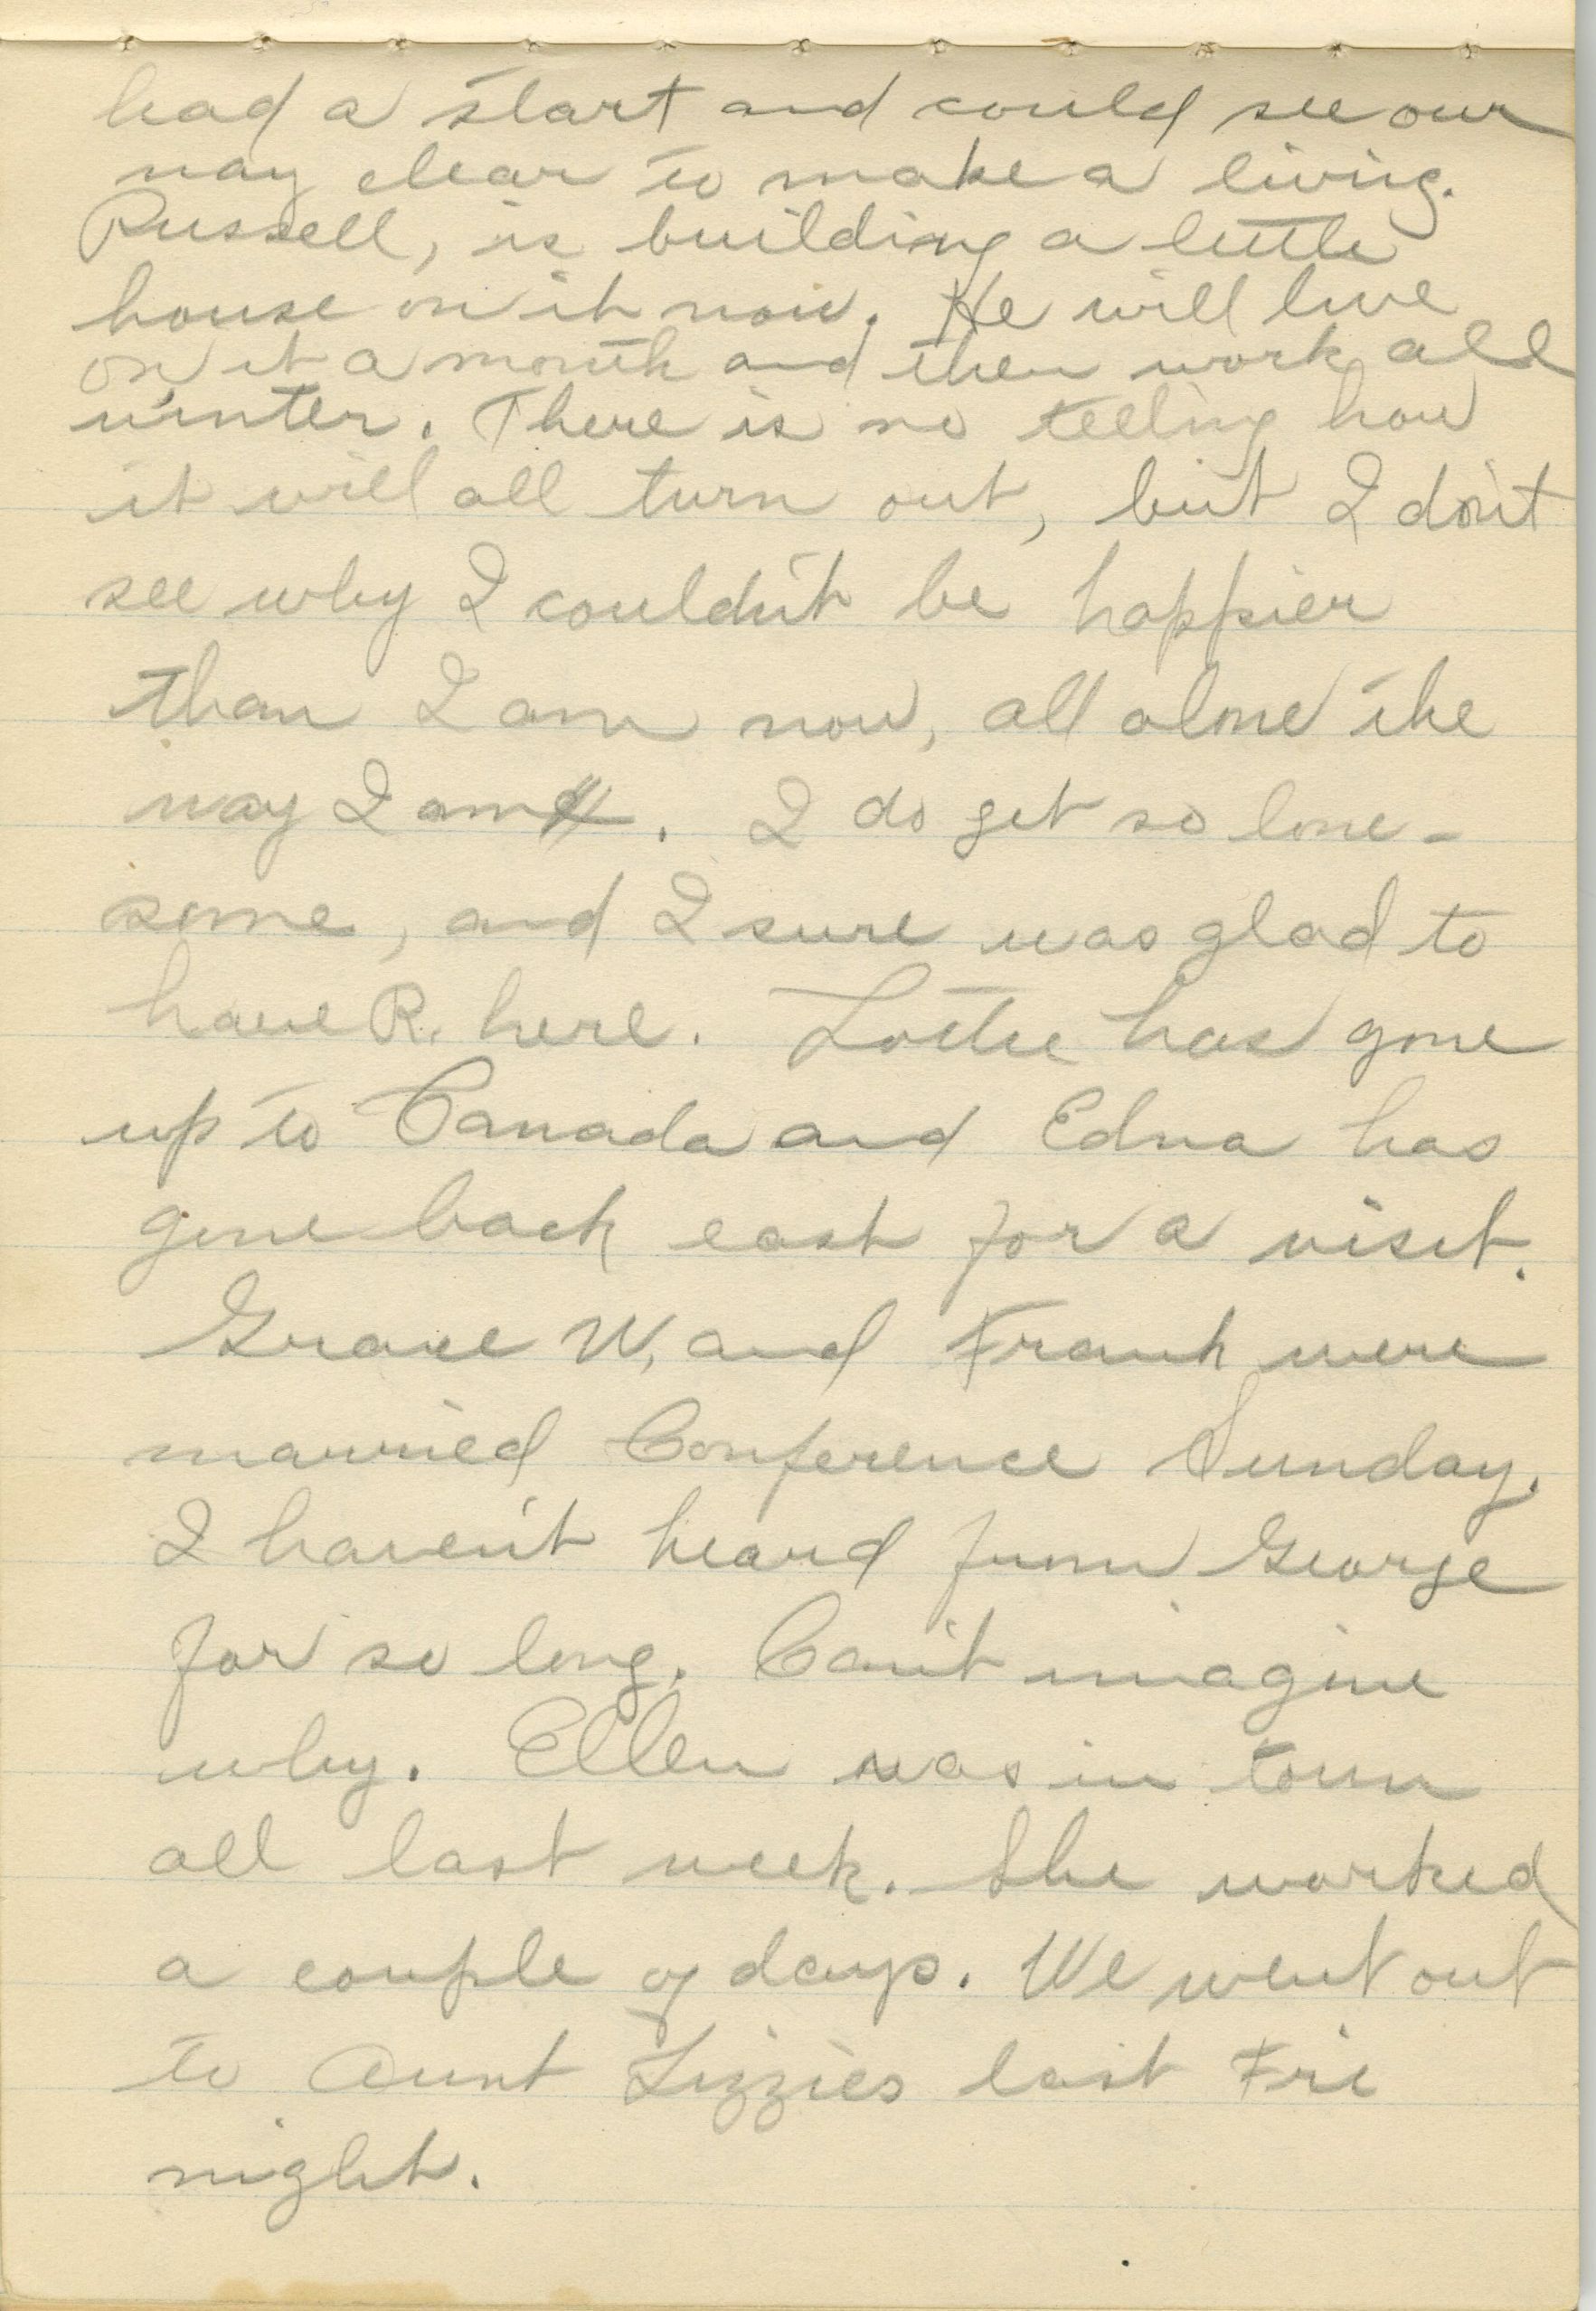 had a start and could see our
way clear to make a living.
Russell, is building a little
house on it now. He will live
on it a month and then work all
winter. There is no telling how
it will all turn out, but I don't
see why I couldn't be happier
than I am now, all alone the
way I am. I do get so lone-
some, and I sure was glad to
have R. here. Lottie has gone
up to Canada and Edna has
gone back east for a visit.
Grace W, and Frank were
married Conference Sunday.
I haven't heard from George
for so long. Can't imagine
why. Ellen was in town
all last week. She worked
a couple of days. We went out
to Aunt Lizzies last Fri
night.